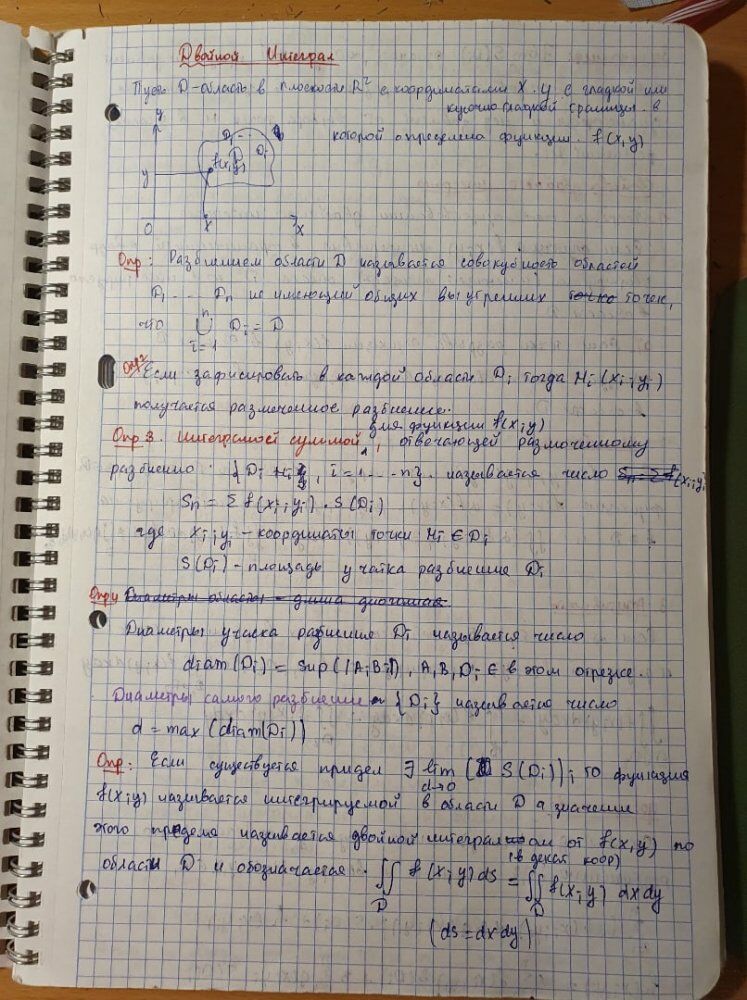 Двойной Интеграл
Пусть D-область в плоскости R² с координатами X, y с гладкой или
кусочно гладкой границы. в
которой определена функции. f(x,y)
y
D₁ - - Dᵢ
f(x,y)
y
O x x
Опр: Разбиением области D называется совокубность областей
D₁ ... Dₙ не имеющий общих внутренних точек,
что ⋃ⁿᵢ₌₁ Dᵢ = D
Опр2 Если зафисировать в каждой области Dᵢ тогда Mᵢ(xᵢ;yᵢ)
получается размеченное разбиение.
для функции f(x;y)
Опр 3. Интегралой суммой, отвечающей размоченному
разбиению {Dᵢ Mᵢ}, i=1...n}. называется число
Sₙ = Σ f(xᵢ;yᵢ) · S(Dᵢ)
где xᵢ;yᵢ – координаты точки Mᵢ ∈ Dᵢ
S(Dᵢ) – площадь учатка разбиение Dᵢ
Опр4 Диаметры области – длина
Диаметры учаска разбиение Dᵢ называется число
diam(Dᵢ) = sup(|AᵢBᵢ|), A,B,Dᵢ ∈ в этом отрезке.
Диаметры самого разбиение {Dᵢ} называется число
d = max(diam(Dᵢ))
Опр: Если существуется придел ∃ lim d→0 ( S(Dᵢ)); то функция
f(x;y) называется интегрируемой в области D а значении
этого предела называется двойной интегралом от f(x,y) по
(в декат. коор)
области D и обозначается. ∬D f(x;y) ds = ∬D f(x;y) dxdy
(ds=dxdy)